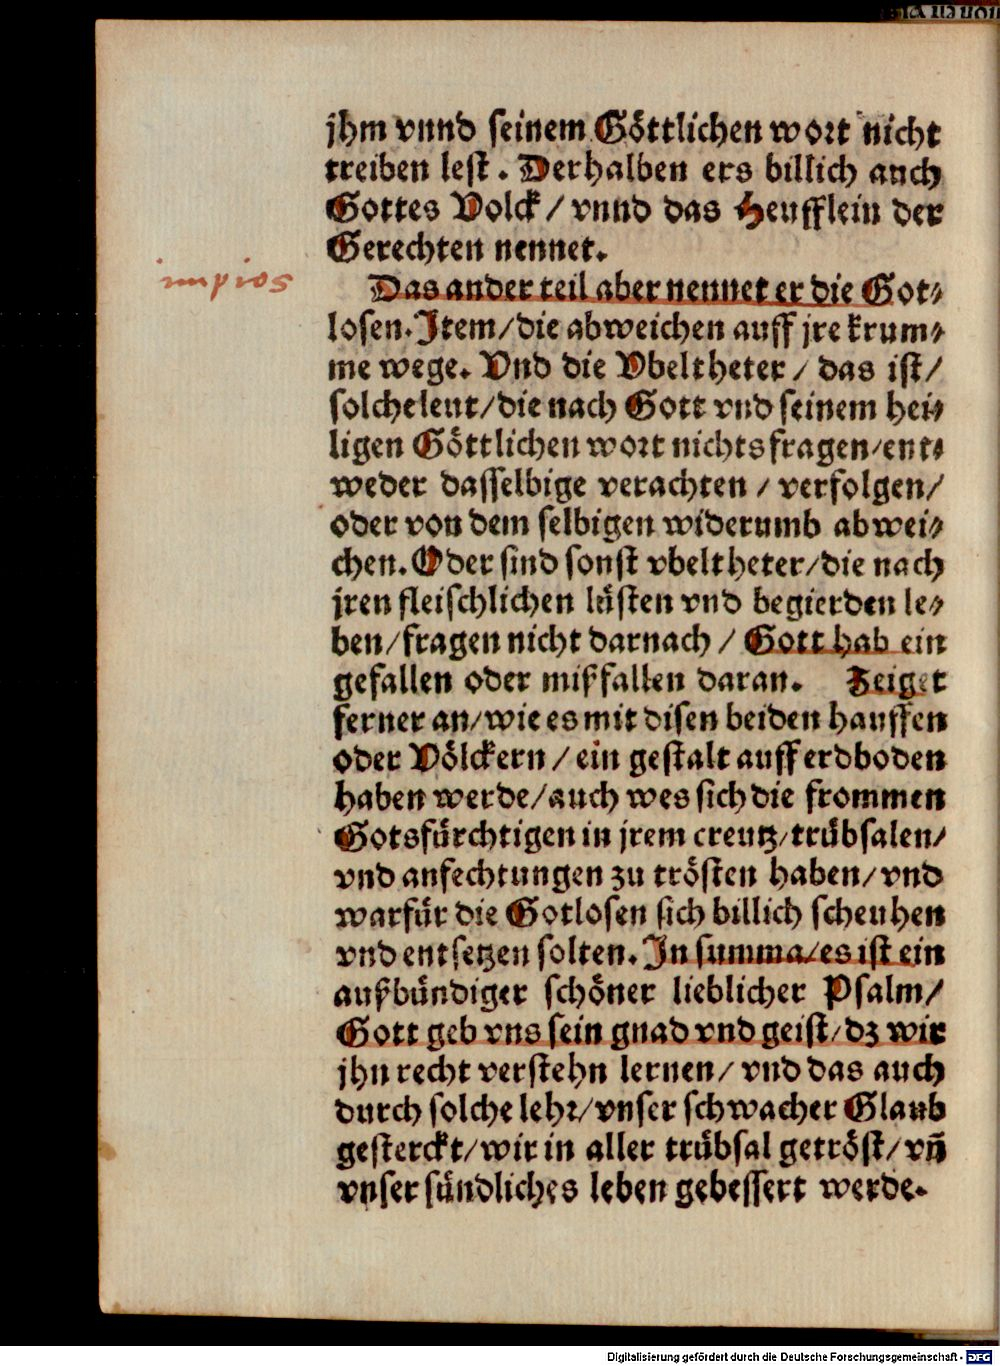 jhm vnnd seinem Göttlichen wort nicht
treiben lest. Derhalben ers billich auch
Gottes Volck/ vnnd das Heufflein der
Gerechten nennet.
impios
Das ander teil aber nennet er die Got⸗
losen. Item/die abweichen auff jre krum⸗
me wege. Vnd die Vbeltheter/ das ist/
solche leut/die nach Gott vnd seinem hei⸗
ligen Göttlichen wort nichts fragen/ent⸗
weder dasselbige verachten/ verfolgen/
oder von dem selbigen widerumb abwei⸗
chen. Oder sind sonst vbeltheter/die nach
jren fleischlichen lüsten vnd begierden le⸗
ben/fragen nicht darnach/ Gott hab ein
gefallen oder mißfallen daran. Zeiget
ferner an/wie es mit disen beiden hauffen
oder Völckern/ ein gestalt auff erdboden
haben werde/auch wes sich die frommen
Gotsfürchtigen in jrem creutz/trübsalen/
vnd anfechtungen zu trösten haben/vnd
warfür die Gotlosen sich billich scheuhen
vnd entsetzen solten. In summa/es ist ein
außbündiger schöner lieblicher Psalm/
Gott geb vns sein gnad vnd geist/dz wir
jhn recht verstehn lernen/ vnd das auch
durch solche lehr/vnser schwacher Glaub
gesterckt/wir in aller trübsal getröst/vn̄
vnser sündliches leben gebessert werde.
Digitalisierung gefördert durch die Deutsche Forschungsgemeinschaft - DFG